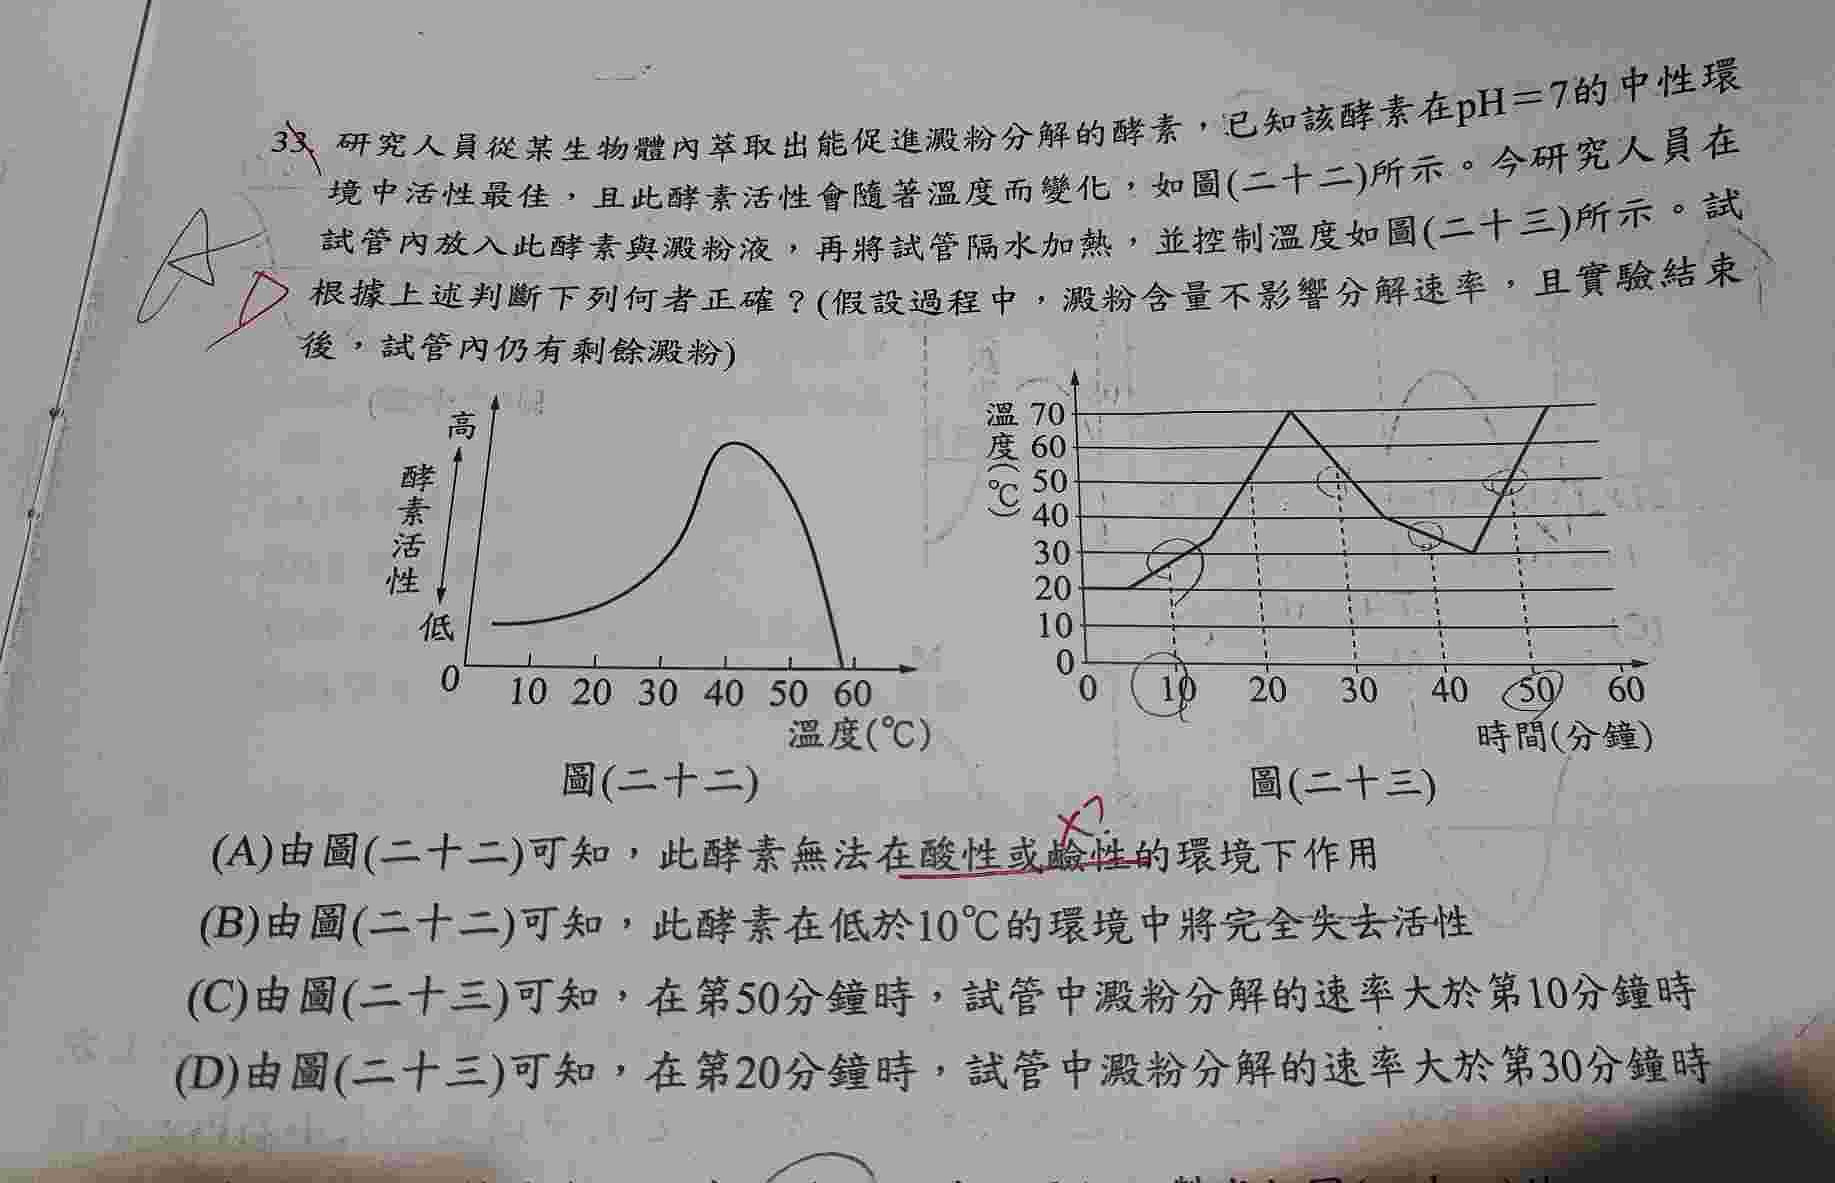 33. 研究人員從某生物體內萃取出能促進澱粉分解的酵素，已知該酵素在pH＝7的中性環
境中活性最佳，且此酵素活性會隨著溫度而變化，如圖(二十二)所示。今研究人員在
試管內放入此酵素與澱粉液，再將試管隔水加熱，並控制溫度如圖(二十三)所示。試
A
D
根據上述判斷下列何者正確？(假設過程中，澱粉含量不影響分解速率，且實驗結束
後，試管內仍有剩餘澱粉)
高
酵素活性
低
0 10 20 30 40 50 60
溫度(℃)
圖(二十二)
溫度(℃)
70
60
50
40
30
20
10
0
0 10 20 30 40 50 60
時間(分鐘)
圖(二十三)
x?
(A)由圖(二十二)可知，此酵素無法在酸性或鹼性的環境下作用
(B)由圖(二十二)可知，此酵素在低於10℃的環境中將完全失去活性
(C)由圖(二十三)可知，在第50分鐘時，試管中澱粉分解的速率大於第10分鐘時
(D)由圖(二十三)可知，在第20分鐘時，試管中澱粉分解的速率大於第30分鐘時